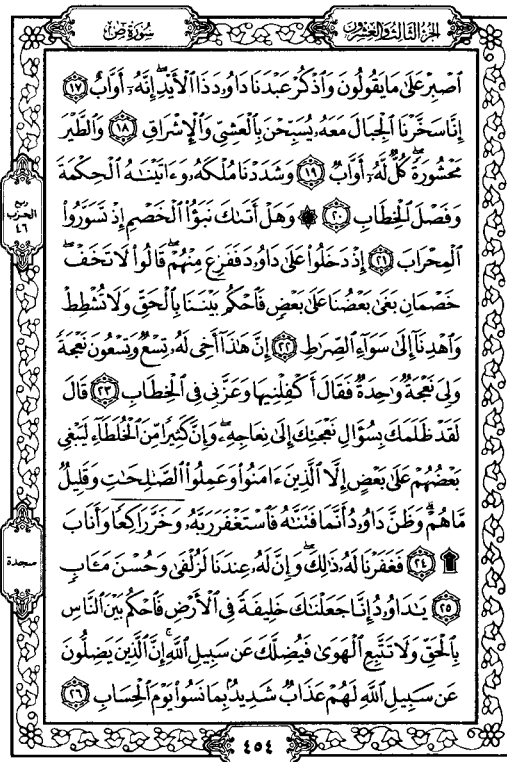 سُورَةُ صٓ
الجُزْءُ الثَّالِثُ وَالعِشْرُونَ
ٱصْبِرْ عَلَىٰ مَا يَقُولُونَ وَٱذْكُرْ عَبْدَنَا دَاوُۥدَ ذَا ٱلْأَيْدِۖ إِنَّهُۥٓ أَوَّابٌ ١٧
إِنَّا سَخَّرْنَا ٱلْجِبَالَ مَعَهُۥ يُسَبِّحْنَ بِٱلْعَشِىِّ وَٱلْإِشْرَاقِ ١٨ وَٱلطَّيْرَ
مَحْشُورَةًۖ كُلٌّ لَّهُۥٓ أَوَّابٌ ١٩ وَشَدَدْنَا مُلْكَهُۥ وَءَاتَيْنَٰهُ ٱلْحِكْمَةَ
وَفَصْلَ ٱلْخِطَابِ ٢٠ ۞ وَهَلْ أَتَىٰكَ نَبَؤُا۟ ٱلْخَصْمِ إِذْ تَسَوَّرُوا۟
ٱلْمِحْرَابَ ٢١ إِذْ دَخَلُوا۟ عَلَىٰ دَاوُۥدَ فَفَزِعَ مِنْهُمْۖ قَالُوا۟ لَا تَخَفْۖ
خَصْمَانِ بَغَىٰ بَعْضُنَا عَلَىٰ بَعْضٍ فَٱحْكُم بَيْنَنَا بِٱلْحَقِّ وَلَا تُشْطِطْ
وَٱهْدِنَآ إِلَىٰ سَوَآءِ ٱلصِّرَٰطِ ٢٢ إِنَّ هَٰذَآ أَخِى لَهُۥ تِسْعٌ وَتِسْعُونَ نَعْجَةً
وَلِىَ نَعْجَةٌ وَٰحِدَةٌ فَقَالَ أَكْفِلْنِيهَا وَعَزَّنِى فِى ٱلْخِطَابِ ٢٣ قَالَ
لَقَدْ ظَلَمَكَ بِسُؤَالِ نَعْجَتِكَ إِلَىٰ نِعَاجِهِۦۖ وَإِنَّ كَثِيرًا مِّنَ ٱلْخُلَطَآءِ لَيَبْغِى
بَعْضُهُمْ عَلَىٰ بَعْضٍ إِلَّا ٱلَّذِينَ ءَامَنُوا۟ وَعَمِلُوا۟ ٱلصَّٰلِحَٰتِ وَقَلِيلٌ
مَّا هُمْۗ وَظَنَّ دَاوُۥدُ أَنَّمَا فَتَنَّٰهُ فَٱسْتَغْفَرَ رَبَّهُۥ وَخَرَّ رَاكِعًا وَأَنَابَ
۩ ٢٤ فَغَفَرْنَا لَهُۥ ذَٰلِكَۖ وَإِنَّ لَهُۥ عِندَنَا لَزُلْفَىٰ وَحُسْنَ مَـَٔابٍ
٢٥ يَٰدَاوُۥدُ إِنَّا جَعَلْنَٰكَ خَلِيفَةً فِى ٱلْأَرْضِ فَٱحْكُم بَيْنَ ٱلنَّاسِ
بِٱلْحَقِّ وَلَا تَتَّبِعِ ٱلْهَوَىٰ فَيُضِلَّكَ عَن سَبِيلِ ٱللَّهِۚ إِنَّ ٱلَّذِينَ يَضِلُّونَ
عَن سَبِيلِ ٱللَّهِ لَهُمْ عَذَابٌ شَدِيدٌۢ بِمَا نَسُوا۟ يَوْمَ ٱلْحِسَابِ ٢٦
ربع
الحزب
٤٦
سجدة
٤٥٤